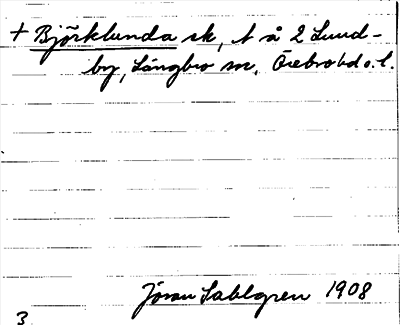 + Björklunda sk, t å 2 Lund-
by, Långbro sn, Örebro hd o. l.
Jöran Sahlgren 1908
3